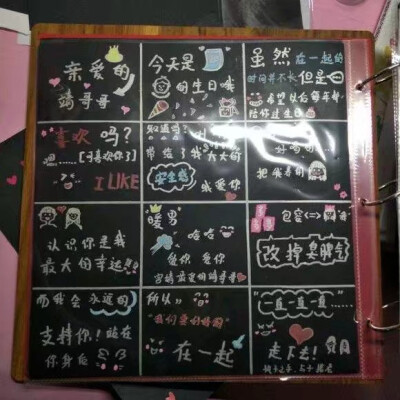 亲爱的
靖哥哥
今天是
的生日哦
虽然在一起的
时间并不长但是
希望以后每年都
给你过生日
喜欢吗?
嗯……【可喜欢你了】
I LIKE
知道吗?
带给了我大大的
安全感
我爱你
好吗
把我养的
认识你是我
最大的幸运!!
暖男
哈哈
爱你 爱你
靖哥哥
包容<=>
改掉臭脾气
而我会永远的
支持你!站在
你身后
所以》
"我们要好好的"
在一起
"一直一直一直……"
走下去!